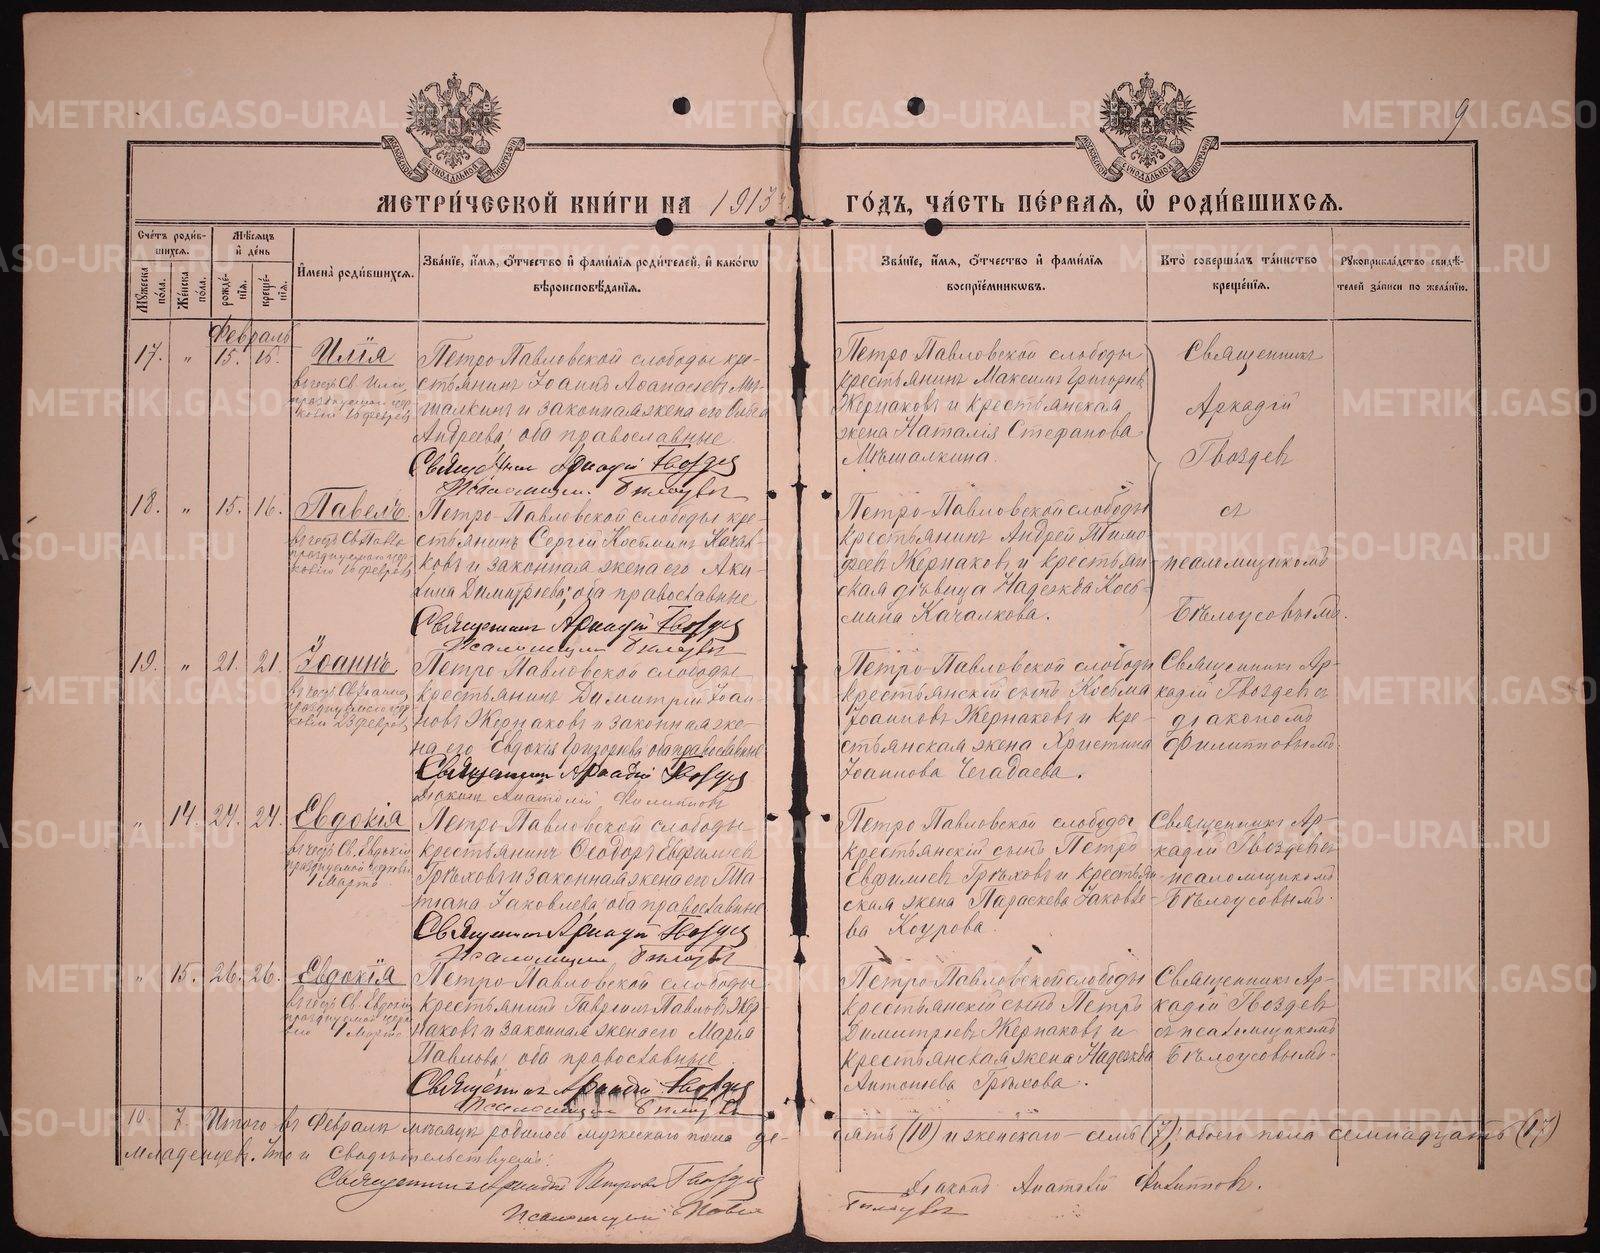 9
МЕТРИ́ЧЕСКОЙ КНИ́ГИ НА 1913 г. ГО́ДЪ, ЧА́СТЬ ПЕ́РВАЯ, Ѡ҆ РОДИ́ВШИХСЯ.
Сче́тъ роди́вшихся.
Му́жеска по́ла.
Же́нска по́ла.
Мѣ́сяцъ и҆ де́нь
рожде́нїя.
креще́нїя.
И҆мена̀ роди́вшихся.
Зва́нїе, и҆́мя, ѻ҆́тчество и҆ фами́лїя роди́телей, и҆ како́гѡ
вѣроисповѣ́данїя.
Зва́нїе, и҆́мя, ѻ҆́тчество и҆ фами́лїя
воспрїе́мникѡвъ.
Кто̀ соверша́лъ та́инство
креще́нїя.
Рꙋкоприкла́дство свидѣ́-
телей за́писи по жела́нїю.
Февраль
17. " 15. 15. Илія
въ честь Св. Иліи,
празднуемаго цер-
ковію 16 февраля
Петро-Павловской слободы кре-
стьянинъ Іоаннъ Аѳанасіевъ Мѣ-
шалкинъ и законная жена его
Андреева; оба православные
Священникъ Аркадій Гвоздевъ
Псаломщикъ Бѣлоусовъ
Петро Павловской слободы
крестьянинъ Максимъ Григорьевъ
Жернаковъ и крестьянская
жена Наталія Стефанова
Мѣшалкина.
Священникъ
Аркадій
Гвоздевъ
18. " 15. 16. Павелъ
въ честь Св. Павла
празднуемаго цер-
ковію 16 февраля
Петро-Павловской слободы кре-
стьянинъ Сергій Косьминъ Качал-
ковъ и законная жена его Аки-
лина Димитріева; оба православные
Священникъ Аркадій Гвоздевъ
Псаломщикъ Бѣлоусовъ
Петро-Павловской слободы
крестьянинъ Андрей Тимо-
феевъ Жернаковъ и крестьян-
ская дѣвица Надежда Кось-
мина Качалкова.
съ
псаломщикомъ
Бѣлоусовымъ.
19. " 21. 21. Іоаннъ
въ честь Св. Іоанна,
празднуемаго цер-
ковію 23 февраля
Петро-Павловской слободы
крестьянинъ Димитрій Іоан-
новъ Жернаковъ и законная же-
на его Евдокія Григорьева оба православные
Священникъ Аркадій Гвоздевъ
Діаконъ Анатолій Филипповъ
Петро-Павловской слободы
крестьянскій сынъ Косьма
Іоанновъ Жернаковъ и кре-
стьянская жена Христина
Іоаннова Чегадаева.
Священникъ Ар-
кадій Гвоздевъ съ
діакономъ
Филипповымъ.
" 14. 24. 24. Евдокія
въ честь Св. Евдокіи
празднуемой церковію
1 Марта
Петро-Павловской слободы
крестьянинъ Ѳеодоръ Евфиміевъ
Грѣховъ и законная жена его Та-
тіана Іаковлева; оба православные
Священникъ Аркадій Гвоздевъ
Псаломщикъ Бѣлоусовъ
Петро Павловской слободы
крестьянскій сынъ Петръ
Евфиміевъ Грѣховъ и крестьян-
ская жена Параскева Іаковле-
ва Коурова.
Священникъ Ар-
кадій Гвоздевъ съ
псаломщикомъ
Бѣлоусовымъ.
" 15. 26. 26. Евдокія
въ честь Св. Евдокіи
празднуемой церко-
вію 1 Марта
Петро-Павловской слободы
крестьянинъ Гавріилъ Павловъ Жер-
наковъ и законная жена его Марія
Павлова; оба православные.
Священникъ Аркадій Гвоздевъ
Псаломщикъ Бѣлоусовъ
Петро-Павловской слободы
крестьянскій сынъ Петръ
Димитріевъ Жернаковъ и
крестьянская жена Надежда
Антонова Грѣхова.
Священникъ Ар-
кадій Гвоздевъ
съ псаломщикомъ
Бѣлоусовымъ.
10. 7. Итого въ Февралѣ мѣсяцѣ родилось мужескаго пола де-
сять (10) и женскаго – семь (7), обоего пола семнадцать (17)
младенцевъ. Что и свидѣтельствуемъ:
Священникъ Аркадій Петровъ Гвоздевъ
Діаконъ Анатолій Филипповъ.
Псаломщикъ Павелъ Бѣлоусовъ
METRIKI.GASO-URAL.RU